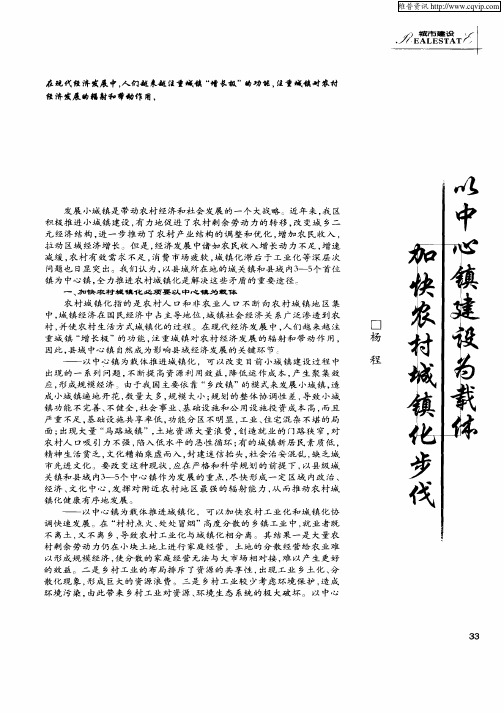 维普资讯 http://www.cqvip.com
城市建设
REALESTATE
在现代经济发展中,人们越来越注重城镇“增长极”的功能,注重城镇对农村
经济发展的辐射和带动作用,
以中心镇建设为载体
加快农村城镇化步伐
□杨 程
发展小城镇是带动农村经济和社会发展的一个大战略。近年来,我区
积极推进小城镇建设,有力地促进了农村剩余劳动力的转移,改变城乡二
元经济结构,进一步推动了农村产业结构的调整和优化,增加农民收入,
拉动区域经济增长。但是,经济发展中诸如农民收入增长动力不足,增速
减缓,农村有效需求不足,消费市场疲软,城镇化滞后于工业化等深层次
问题也日显突出。我们认为,以县城所在地的城关镇和县域内3—5个首位
镇为中心镇,全力推进农村城镇化是解决这些矛盾的重要途径。
一、加快农村城镇化必须要以中心镇为载体
农村城镇化指的是农村人口和非农业人口不断向农村城镇地区集
中,城镇经济在国民经济中占主导地位,城镇社会经济关系广泛渗透到农
村,并使农村生活方式城镇化的过程。在现代经济发展中,人们越来越注
重城镇“增长极”的功能,注重城镇对农村经济发展的辐射和带动作用,
因此,县城中心镇自然成为影响县域经济发展的关键环节。
——以中心镇为载体推进城镇化,可以改变目前小城镇建设过程中
出现的一系列问题,不断提高资源利用效益,降低运作成本,产生聚集效
应,形成规模经济。由于我国主要依靠“乡改镇”的模式来发展小城镇,造
成小城镇遍地开花,数量太多,规模太小;规划的整体协调性差,导致小城
镇功能不完善、不健全,社会事业、基础设施和公用设施投资成本高,而且
严重不足,基础设施共享率低,功能分区不明显,工业、住宅混杂不堪的局
面;出现大量“马路城镇”,土地资源大量浪费,创造就业的门路狭窄,对
农村人口吸引力不强,陷入低水平的恶性循环;有的城镇新居民素质低,
精神生活贫乏,文化糟粕乘虚而入,封建迷信抬头,社会治安混乱,缺乏城
市先进文化。要改变这种现状,应在严格和科学规划的前提下,以县级城
关镇和县域内3—5个中心镇作为发展的重点,尽快形成一定区域内政治、
经济、文化中心,发挥对附近农村地区最强的辐射能力,从而推动农村城
镇化健康有序地发展。
——以中心镇为载体推进城镇化,可以加快农村工业化和城镇化协
调快速发展。在“村村点火、处处冒烟”高度分散的乡镇工业中,就业者既
不离土,又不离乡,导致农村工业化与城镇化相分离。其结果一是大量农
村剩余劳动力仍在小块土地上进行家庭经营。土地的分散经营给农业难
以形成规模经济,使分散的家庭经营无法与大市场相对接,难以产生更好
的效益。二是乡村工业的布局排斥了资源的共享性,出现工业乡土化、分
散化现象,形成巨大的资源浪费。三是乡村工业较少考虑环境保护,造成
环境污染,由此带来乡村工业对资源、环境生态系统的极大破坏。以中心
33